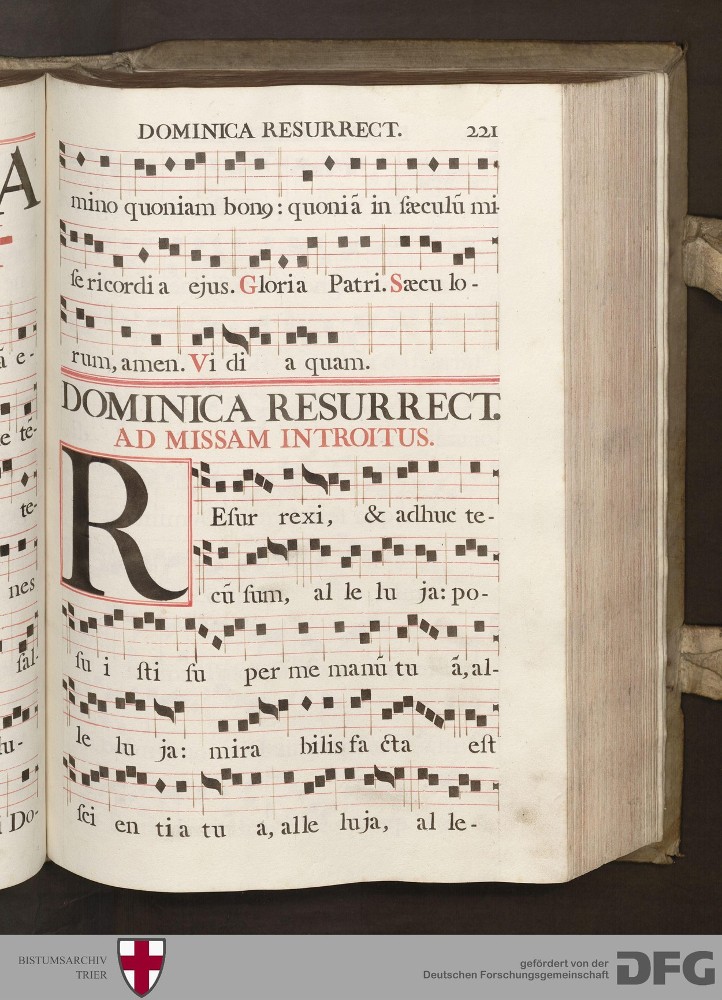 DOMINICA RESURRECT. 221
mino quoniam bonꝯ: quoniã in ſæculũ mi-
ſericordia ejus. Gloria Patri. Sæculo-
rum, amen. Vidi aquam.
DOMINICA RESURRECT.
AD MISSAM INTROITUS.
REſurrexi, & adhuc te-
cũ ſum, alleluja: po-
ſuiſti ſuper me manũ tuã, al-
leluja: mirabilis facta eſt
ſcientia tua, alleluja, alle-
A
ã e-
te té-
te-
nes
ſal-
lu-
i Do-
BISTUMSARCHIV
TRIER
gefördert von der
Deutschen Forschungsgemeinschaft
DFG